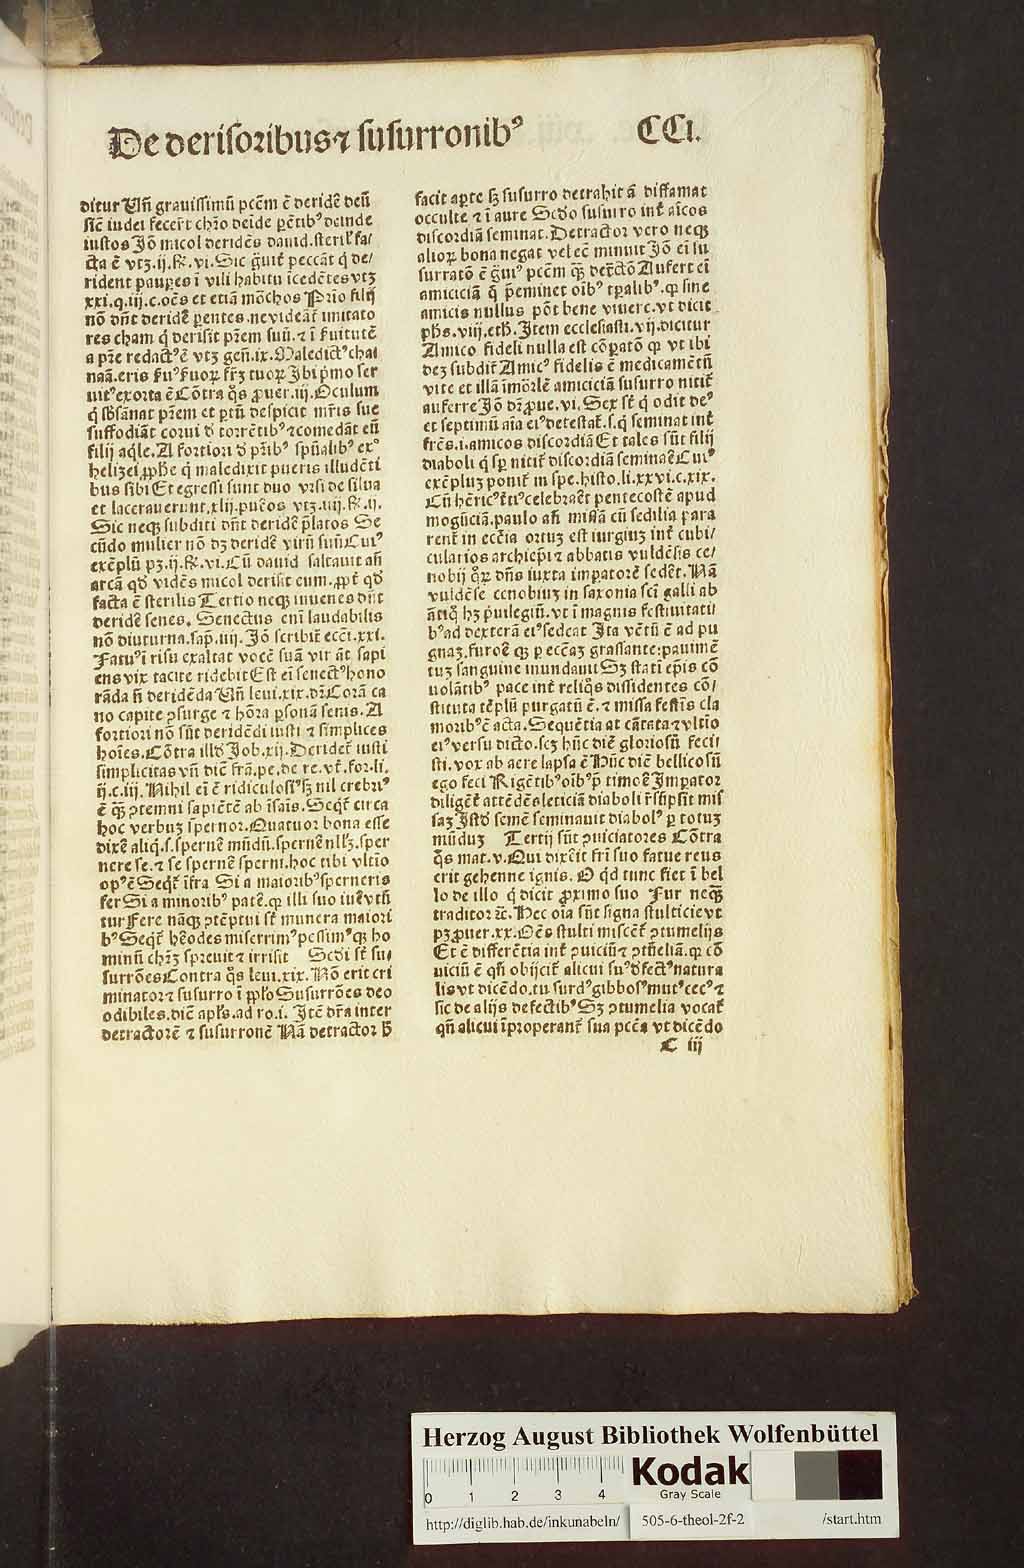 De derisoribus ⁊ susurronibꝰ CCi.
ditur Vñ grauissimũ pcẽm ẽ deridẽ deũ
sic̃ iudei fecer̃t chr̃o deĩde pẽtibꝰ deinde
iustos Jõ micol deridẽs dauid. steril̕ fa/
cta ẽ vtz. ij. R̃. vi. Sic g̃uit̃ peccãt q̇ de/
rident pauꝑes ĩ vili habitu ĩcedẽtes vtz
xxi. q. iij. c. oẽs et etiã mõchos Prio filij
nõ dñt deridẽ parentes. ne videãt̃ imitato
res cham q̇ derisit pr̃em suũ. ⁊ ĩ ẜuitutẽ
a pr̃e redactꝰ ẽ vtz geñ. ix. Maledictꝰ chai
naã. eris ẜuꝰ ẜuoꝝ fr̃ꝫ tuoꝝ Jbi p̃mo ser
uitꝰ exorta ẽ Cõtra q̇s ꝓuer. iij. Oculum
q̇ sb̃sãnat pr̃em et ptũ despicit mr̃is sue
suffodiãt corui d̕ torrẽtibꝰ ⁊ comedãt eũ
filij aq̇le. A fortiori d̕ pr̃ibꝰ spũalibꝰ exº
helizei ꝓp̃he q̇ maledixit pueris illudẽti
bus sibi Et egressi sunt duo vrsi de silua
et lacerauerunt. xlij. puẽos vtz. iiij. R̃. ij.
Sic neqꝫ subditi dñt deridẽ p̃latos Se
cũdo mulier nõ dꝫ deridẽ virũ suũ Cuiꝰ
exẽplũ pꝫ. ij. R̃. vi. Cũ dauid saltauit añ
arcã qđ vidẽs micol derisit eum. ꝓpt̃ qđ
facta ẽ sterilis Tertio neqꝫ iuuenes dñt
deridẽ senes. Senectus eni laudabilis
nõ diuturna. sap̃. iiij. Jõ scribit̃ ecc̃i. xxi.
Fatuꝰ ĩ risu exaltat vocẽ suã vir aũt sapi
ens vix tacite ridebit Est eĩ senectꝰ hono
rãda ñ deridẽda Vñ leui. xix. dr̃ Corã ca
no capite ꝯsurge ⁊ hõra ꝑsonã senis. A
fortiori nõ sũt deridẽdi iusti ⁊ simplices
hoĩes. Cõtra illđ Job. xij. Deridet̃ iusti
simplicitas vñ dic̃ frã. pe. de re. vt̃. for. li.
ij. c. iij. Nihil eĩ ẽ ridiculosiꝰ sꝫ nil crebriꝰ
ẽ q̃ꝫ ꝯtemni sapiẽtẽ ab ĩsaĩs. Seqt̃ circa
hoc verbuꝫ spernor. Quatuor bona esse
dixẽ aliq̇. s. spernẽ mũdũ. spernẽ nllꝫ. sper
nere se. ⁊ se spernẽ sperni. hoc tibi vltio
opꝰ ẽ Seqt̃ ĩfra Si a maioribꝰ sperneris
fer Si a minoribꝰ patẽ. qꝛ illi suo iuẽ vtũ
tur Fere nãqꝫ ꝯtẽptui st̃ munera maiori
bꝰ Seqt̃ hẽodes miserrimꝰ pessimꝰqꝫ ho
minũ chr̃ꝫ spreuit ⁊ irrisit Scđi st̃ su/
surrões Contra q̇s leui. xix. Nõ erit cri
minator ⁊ susurro ĩ ppl̕o Susurrões deo
odibiles. dic̃ apl̕s. ad ro. i. Jtẽ dr̃a inter
detractorẽ ⁊ susurronẽ Nã detractor ħ
facit aperte sꝫ susurro detrahit ã diffamat
occulte ⁊ ĩ aure Scđo susurro int̃ aĩcos
discordiã seminat. Detractor vero neqꝫ
alioꝝ bona negat vel eẽ minuit Jõ eĩ su
surratõ ẽ g̃uiꝰ pcẽm q̃ꝫ detc̃tõ Aufert eĩ
amiciciã q̇ p̃eminet oĩbꝰ tꝑalibꝰ. qꝛ sine
amicis nullus põt bene viuere. vt dicit
ph̃s. viij. eth̃. Jtem ecclesiasti. vij. dicitur
Amico fideli nulla est cõꝑatõ qꝛ vt ibi
deꝫ subdit̃ Amicꝰ fidelis ẽ medicamẽtũ
vite et illã ĩmõrlẽ amiciciã susurro nitit̃
auferre Jõ dr̃ ꝓue. vi. Sex st̃ q̇ odit deꝰ
et septimũ aĩa eiꝰ detestat̃. s. q̇ seminat int̃
fr̃es. i. amicos discordiã Et tales sũt filij
diaboli q̇ sꝑ nitit̃ discordiã seminaẽ Cuiꝰ
exẽpluꝫ ponit̃ in spe. histo. li. xxvi. c. xix.
Cũ hẽricꝰ t̃tiꝰ celebraẽt pentecostẽ apud
mogũciã. paulo añ missã cũ sedilia para
rent̃ in ecc̃ia ortuꝫ est iurgiuꝫ int̃ cubi/
cularios archiep̃i ⁊ abbatis vuldẽsis ce/
nobij q̇ꝝ dñs iuxta imperatorẽ sedẽt. Nã
vuldẽse cenobiuꝫ in saxonia sci̇ galli ab
ãtiq̇ hꝫ p̃uilegiũ. vt ĩ magnis festiuitati/
bꝰ ad dexterã eiꝰ sedeat Jta vẽtũ ẽ ad pu
gnaꝫ. furoẽ qꝫ ꝑ ecc̃aꝫ grassante: pauimẽ
tuꝫ sanguine inundauit Sꝫ stati ep̃is cõ
uolãtibꝰ pace int̃ reliq̇s dissidentes cõ/
stituta tẽplũ purgatũ ẽ. ⁊ missa festis̃ cla
moribꝰ ẽ acta. Sequẽtia at cãtata ⁊ vltio
eiꝰ versu dicto. scꝫ hũc diẽ gloriosũ feci
sti. vox ab aere lapsa ẽ Hũc diẽ bellicosũ
ego feci Rigẽtibꝰ oĩbꝰ p̃ timoẽ Jmperator
diligẽt̃ attẽdẽs leticiã diaboli r̃scripsit mis
saꝫ Jstđ semẽ seminauit diabolꝰ ꝑ totuꝫ
mũduꝫ Tertij sũt ꝯuiciatores Cõtra
q̇s mat. v. Qui dixẽit fr̃i suo fatue reus
erit gehenne ignis. O qđ tunc fiet ĩ bel
lo de illo q̇ dicit ꝓximo suo Fur neqꝫ
traditor ⁊c̃. Hec oĩa sũt signa stulticie vt
pꝫ ꝓuer. xx. Oẽs stulti miscẽt̃ ꝯtumelijs
Et ẽ differẽtia int̃ ꝯuiciũ ⁊ ꝯtũeliã. qꝛ cõ
uiciũ ẽ qñ obijcit̃ alicui suꝰ d̕fectꝰ natura
lis vt dicẽdo. tu surdꝰ gibbosꝰ mutꝰ cecꝰ ⁊
sic de alijs defectibꝰ Sꝫ ꝯtumelia vocat̃
qñ alicui ĩproperant̃ sua pcc̃a vt dicẽdo
C iij
Herzog August Bibliothek Wolfenbüttel
0 1 2 3 4
Kodak
Gray Scale
http://diglib.hab.de/inkunabeln/ 505-6-theol-2f-2 /start.htm